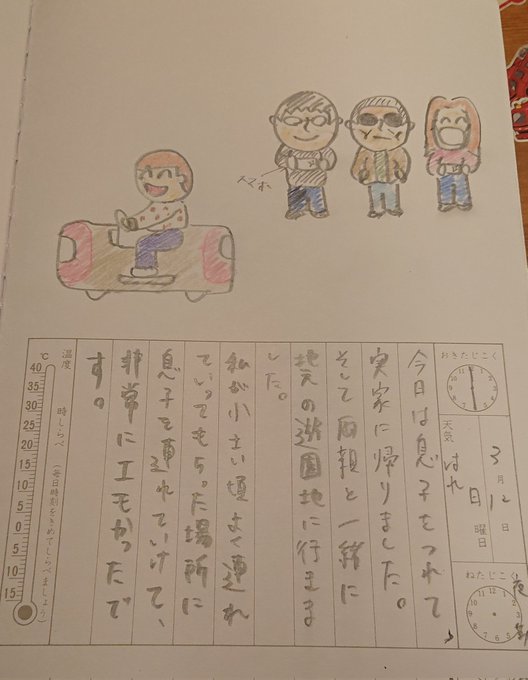 スマホ
おきたじこく
天気
はれ
3月12日
日曜日
ねたじこく
夜勤
今日は息子をつれて、
実家に帰りました。
そして両親と一緒に
地元の遊園地に行きま
した。
私が小さい頃よく連れ
ていってもらった場所に
息子を連れていけて、
非常にエモかったで
す。
温度
時しらべ(毎日時刻をきめてしらべましょう)
℃
40
35
30
25
20
15
10
5
0
5
10
15